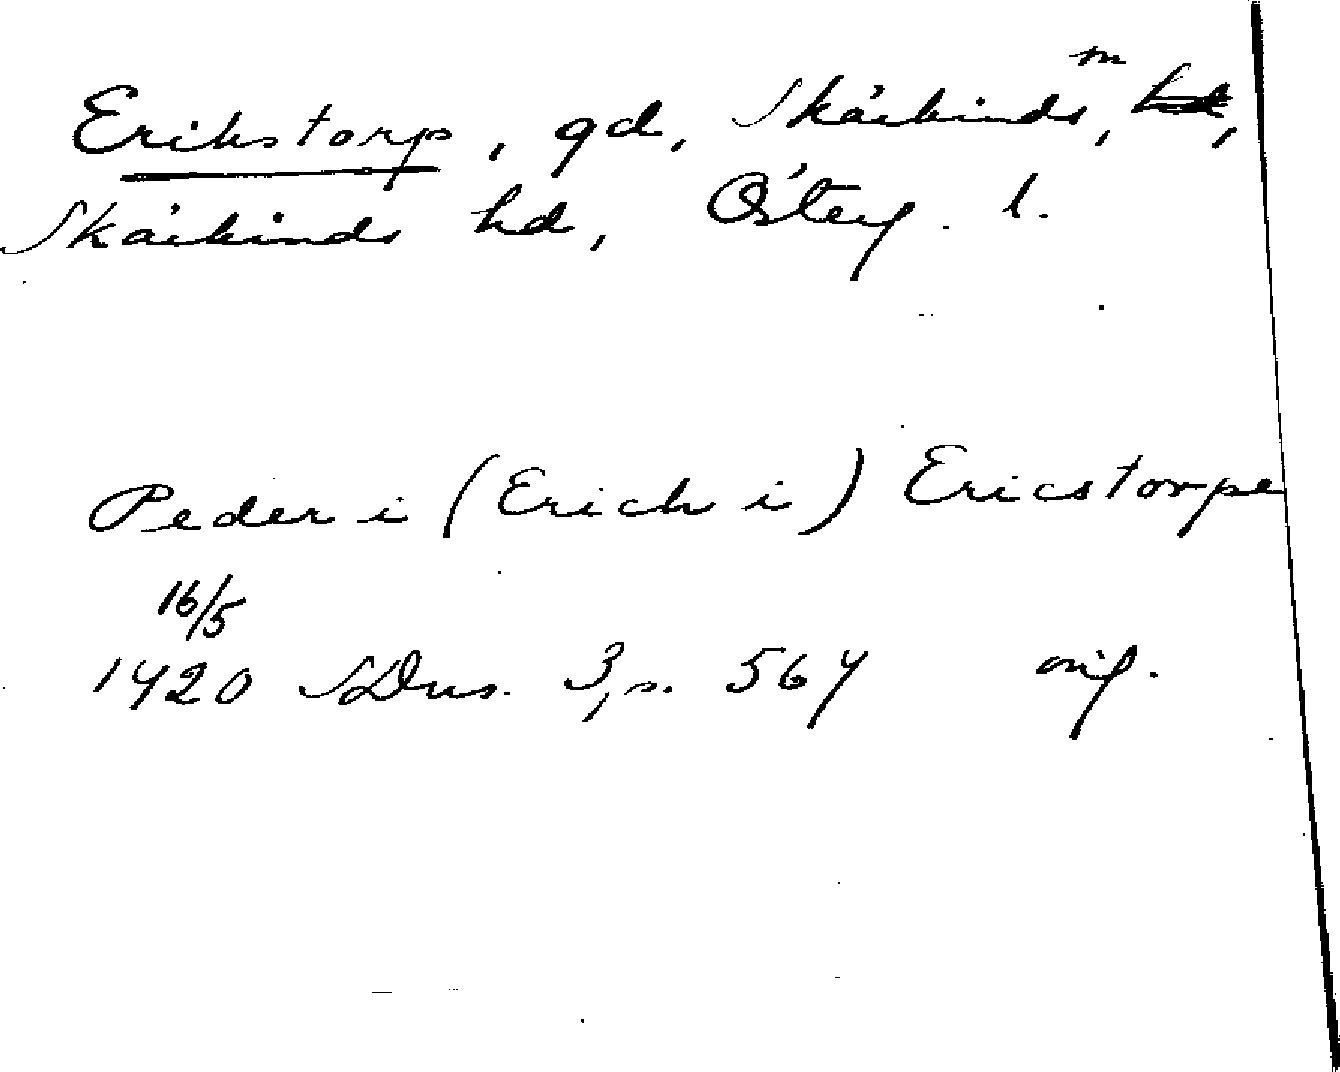 Erikstorp, gd, Skärkinds m,
Skärkinds hd, Österg. l.
Peder i (Erich i) Ericstorpe
16/5
1420 SDns. 3, s. 567 orig.